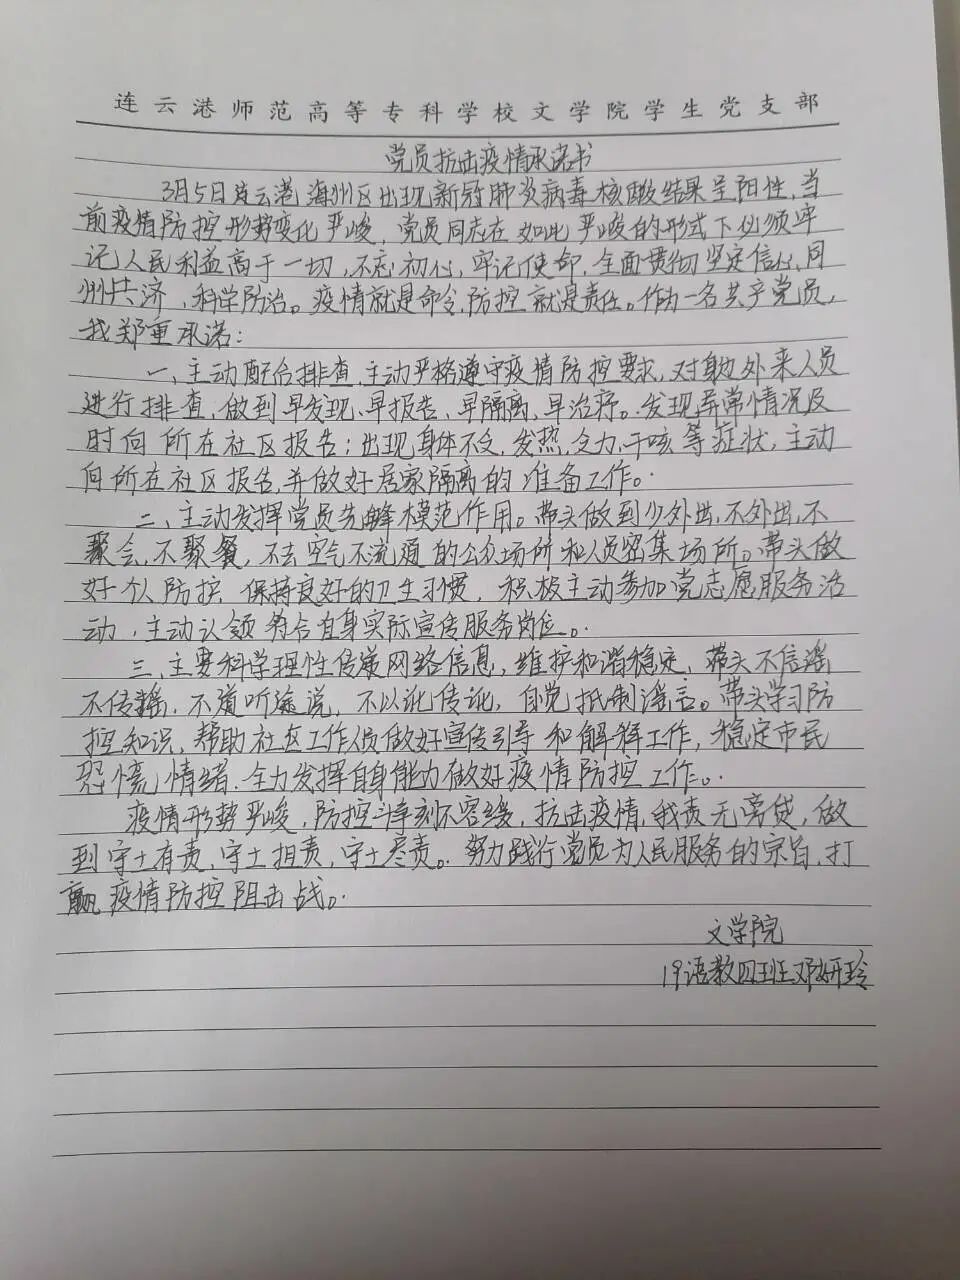 连云港师范高等专科学校文学院学生党支部
党员抗击疫情承诺书
3月5日连云港海州区出现新冠肺炎病毒核酸结果呈阳性,当
前疫情防控形势变化严峻,党员同志在如此严峻的形式下必须牢
记人民利益高于一切,不忘初心,牢记使命,全面贯彻坚定信心,同
舟共济,科学防治。疫情就是命令,防控就是责任。作为一名共产党员,
我郑重承诺:
一、主动配合排查,主动严格遵守疫情防控要求,对身边外来人员
进行排查,做到早发现、早报告、早隔离、早治疗。发现异常情况及
时向所在社区报告;出现身体不适,发热,乏力,干咳等症状,主动
向所在社区报告,并做好居家隔离的准备工作。
二、主动发挥党员先锋模范作用。带头做到少外出,不外出,不
聚会,不聚餐,不去空气不流通的公众场所和人员密集场所。带头做
好个人防护,保持良好的卫生习惯,积极主动参加党志愿服务活
动,主动认领符合自身实际宣传服务岗位。
三、主要科学理性传递网络信息,维护和谐稳定,带头不信谣
不传谣,不道听途说,不以讹传讹,自觉抵制谣言。带头学习防
控知识,帮助社区工作人员做好宣传引导和解释工作,稳定市民
恐慌情绪,全力发挥自身能力做好疫情防控工作。
疫情形势严峻,防控斗争刻不容缓,抗击疫情,我责无旁贷,做
到守土有责,守土担责,守土尽责。努力践行党员为人民服务的宗旨,打
赢疫情防控阻击战。
文学院
19语教四班邓妍玲